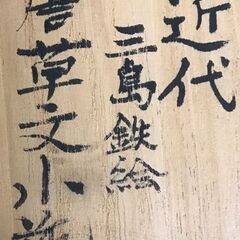 近代
三島鉄絵
唐草文小